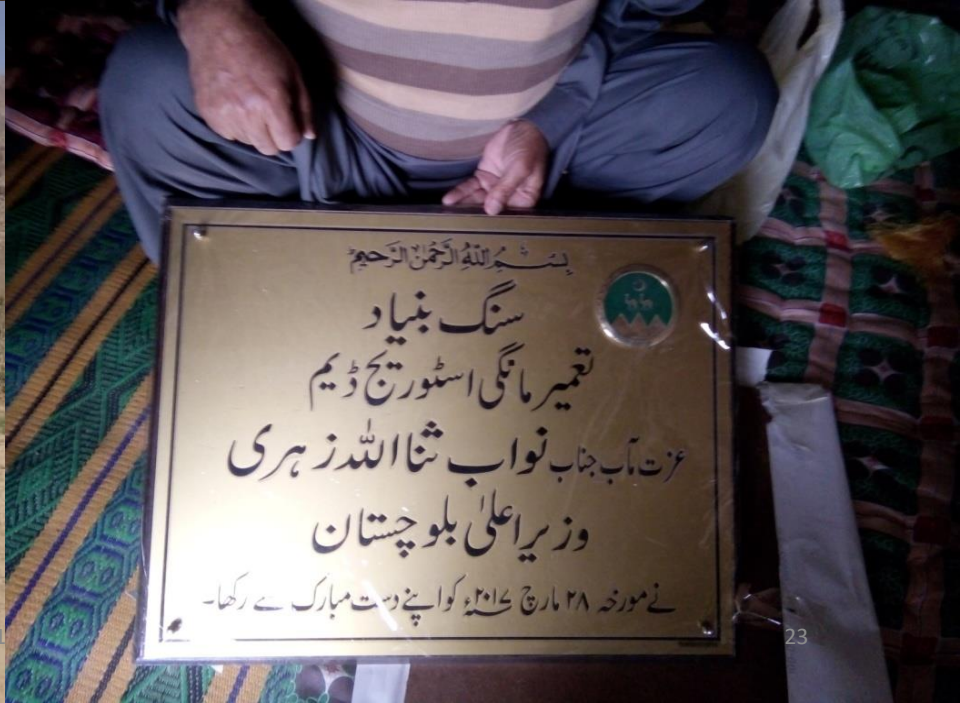 بِسْمِ اللّٰهِ الرَّحْمٰنِ الرَّحِيْمِ
سنگ بنیاد
تعمیر مانگی اسٹوریج ڈیم
عزت مآب جناب نواب ثنااللہ زہری
وزیراعلیٰ بلوچستان
نے مورخہ ۲۸ مارچ ۲۰۱۷ء کو اپنے دست مبارک سے رکھا۔
23